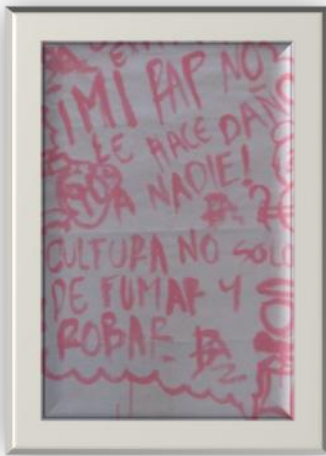 ¡MI RAP NO
LE HACE DAÑ
A NADIE!
CULTURA NO SOLO
DE FUMAR Y
ROBAR